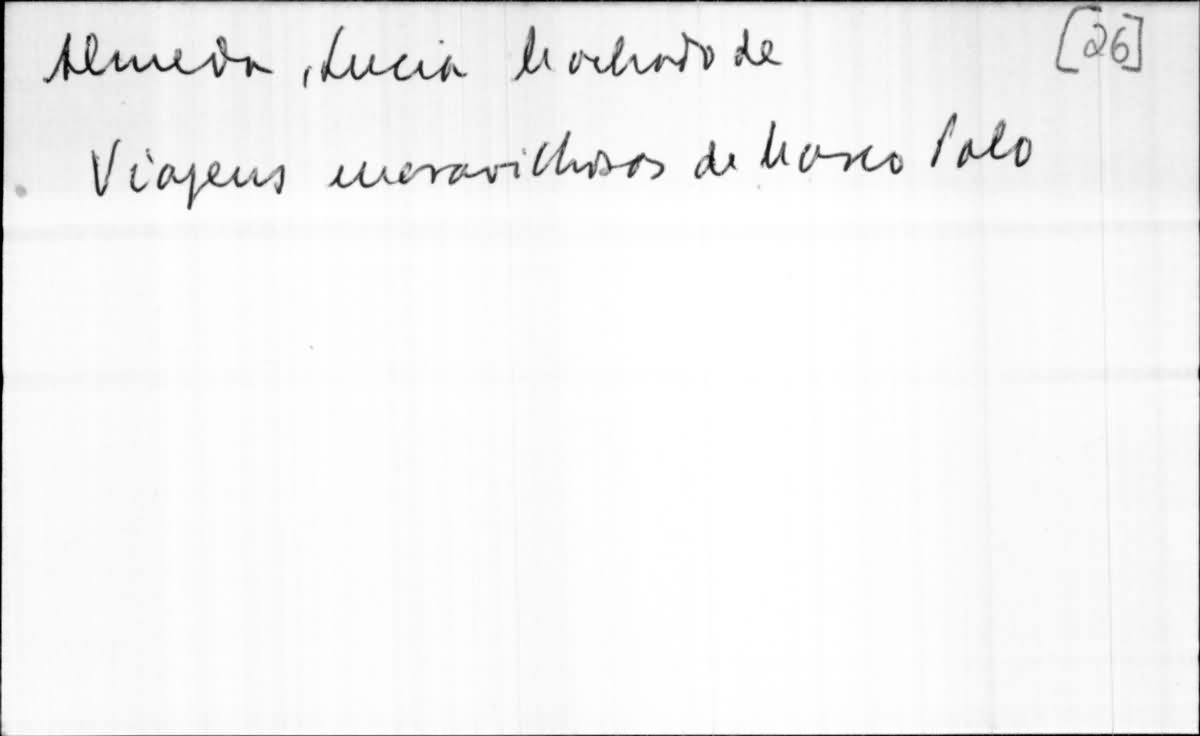 Almeida, Lucia Machado de [26]
Viagens maravilhosas de Marco Polo